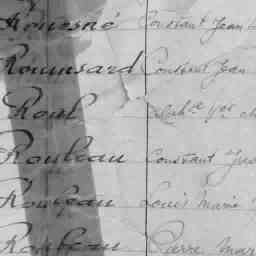 Rouesné Constant Jean
Rouinsard Constant Jean
Roul
Rouleau Constant
Rouleau Louis Marie
Rouleau Pierre Mar